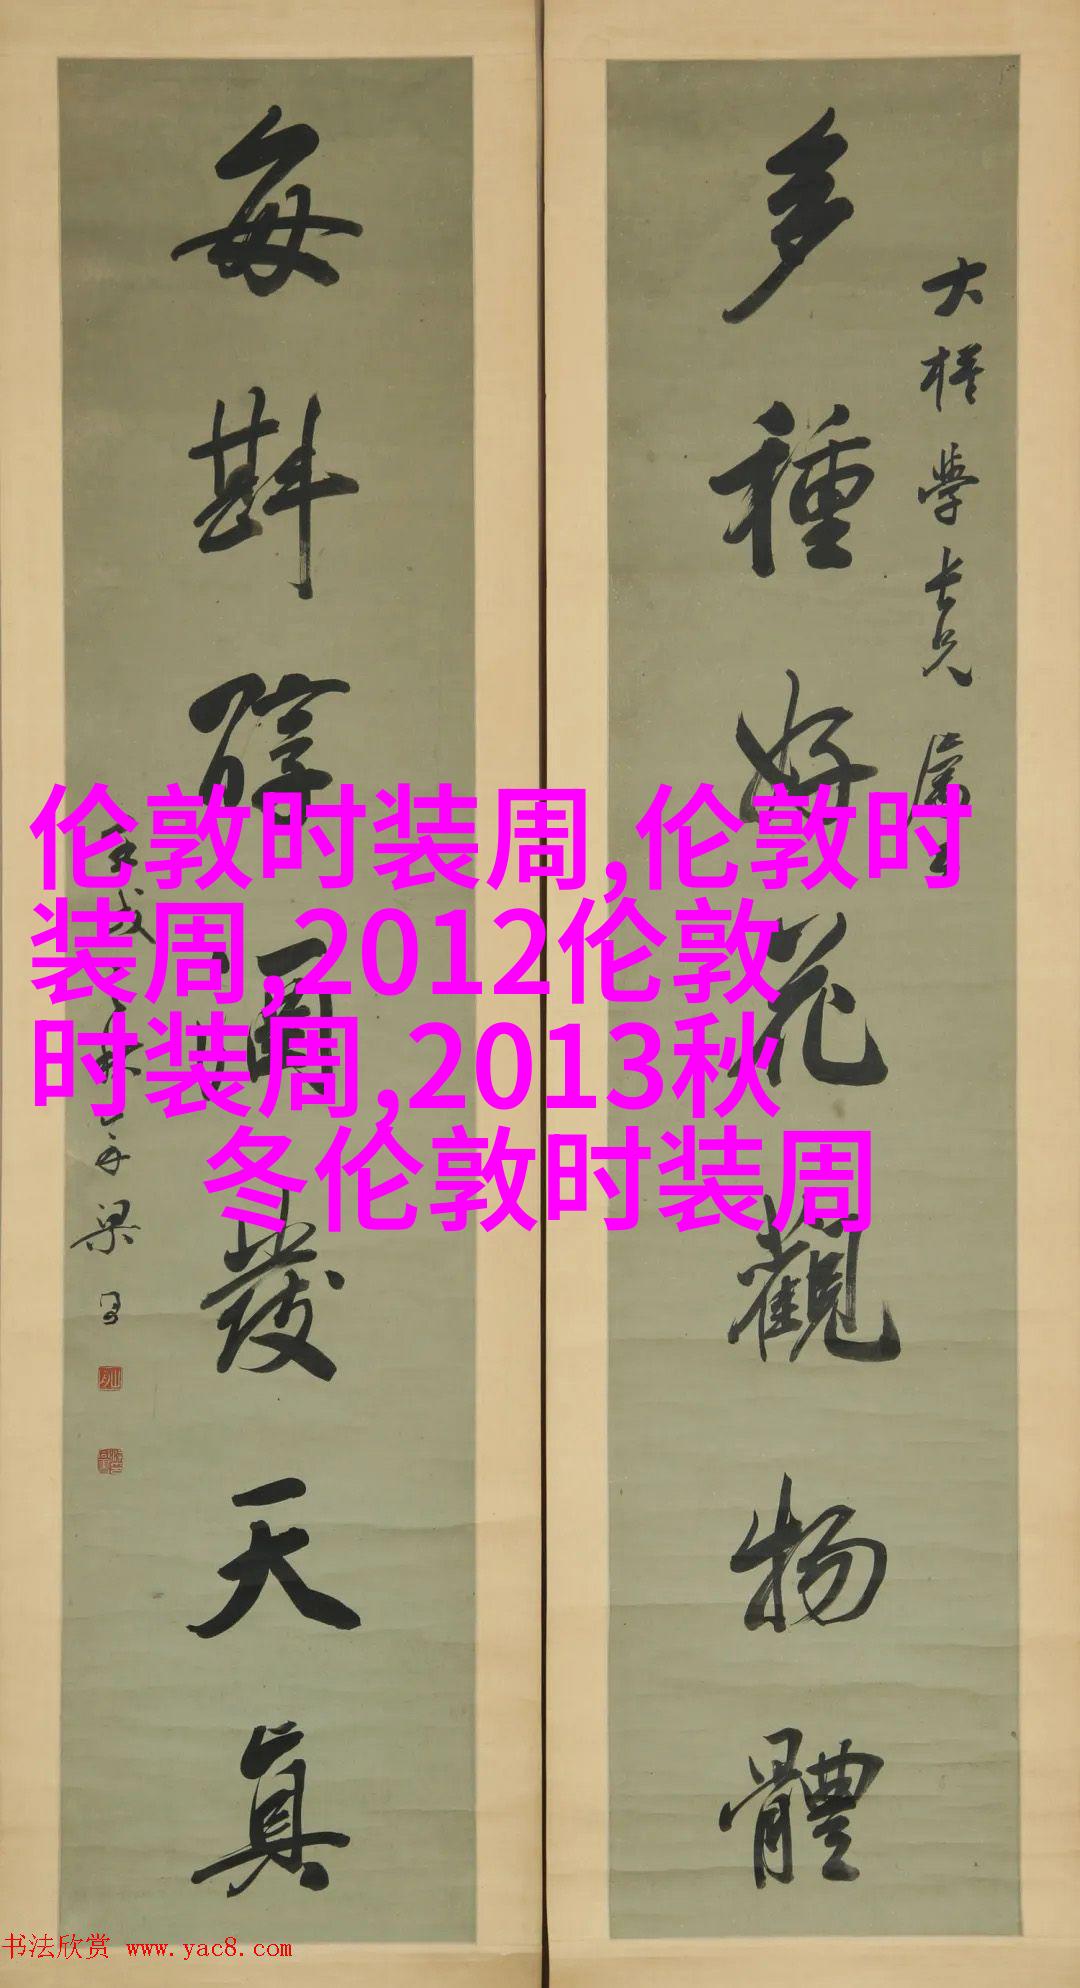 多種好花觀物體
每斟醇酒發天真
大
學長兄屬
梁
伦敦时装周,伦敦时
装周,2012伦敦
时装周,2013秋
冬伦敦时装周
书法欣赏 www.yac8.com